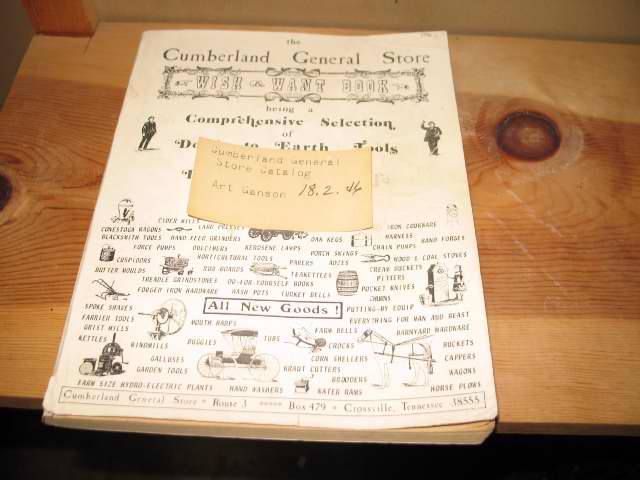 the
Cumberland General Store
WISH & WANT BOOK
being a
Comprehensive Selection
of
Down to Earth Tools
Cumberland General
Store Catalog
Art Ganson 18.2.46
CIDER MILLS
CONESTOGA WAGONS LARD PRESSES IRON COOKWARE
BLACKSMITH TOOLS HAND FEED GRINDERS OAK KEGS HARNESS
FORCE PUMPS DULCIMERS KEROSENE LAMPS CHAIN PUMPS HAND FORGES
PORK SWINGS
CUSPIDORS HORTICULTURAL TOOLS PARERS ADZES WOOD & COAL STOVES
BUTTER MOULDS RUG BOARDS TEAKETTLES CREAM BUCKETS
TREADLE GRINDSTONES DO-FOR-YOURSELF BOOKS PITTERS
FORGED IRON HARDWARE WASH POTS TURKEY BELLS POCKET KNIVES
CHURNS
SPOKE SHAVES All New Goods! PUTTING-BY EQUIP
FARRIER TOOLS MOUTH HARPS EVERYTHING FOR MAN AND BEAST
GRIST MILLS FARM BELLS BARNYARD HARDWARE
KETTLES WINDMILLS BUGGIES TUBS CROCKS BUCKETS
GALLUSES CORN SHELLERS CAPPERS
GARDEN TOOLS KRAUT CUTTERS WAGONS
BROODERS
FARM SIZE HYDRO-ELECTRIC PLANTS HAND WASHERS WATER RAMS HORSE PLOWS
Cumberland General Store * Route 3 ***** Box 479 * Crossville, Tennessee 38555